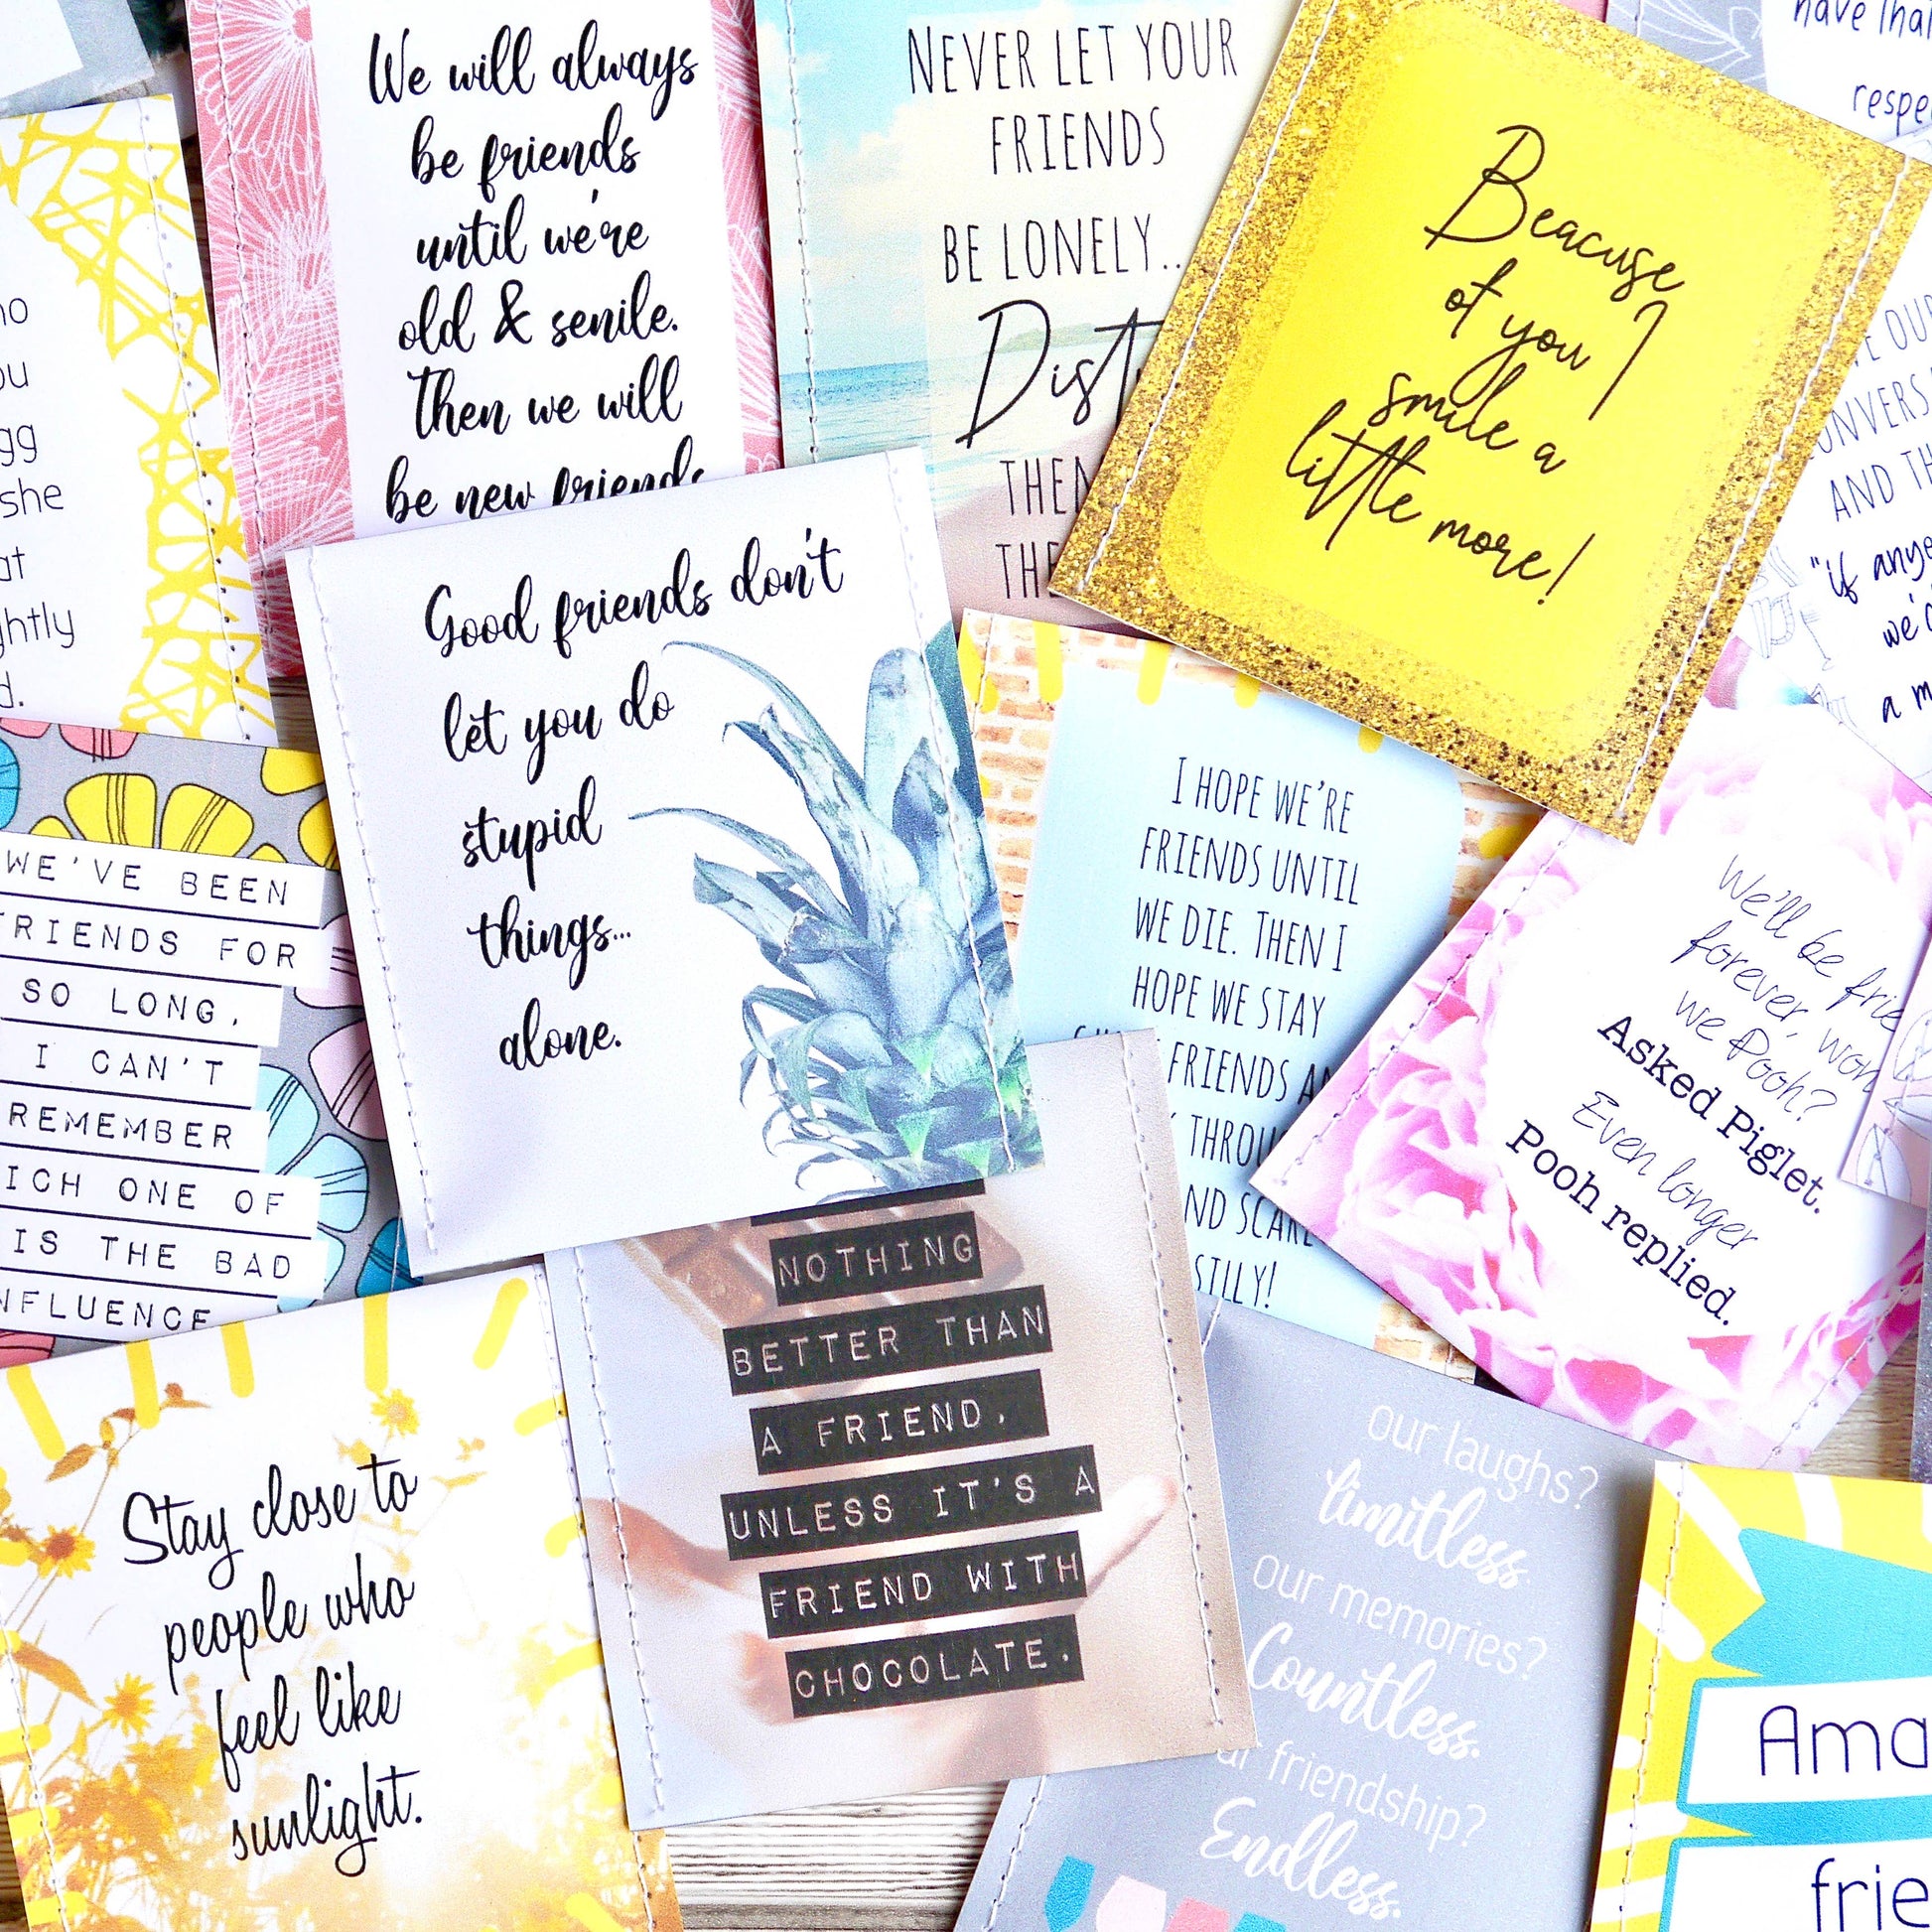 We will always
be friends
until we're
old & senile.
Then we will
be new friends
NEVER LET YOUR
FRIENDS
BE LONELY...
THEN
Beacuse
of you I
smile a
little more!
have that
OUR
AND
"if
we'd
a
you
she
Good friends don't
let you do
stupid
things...
alone.
I HOPE WE'RE
FRIENDS UNTIL
WE DIE. THEN I
HOPE WE STAY
FRIENDS
We'll be
forever,
we Pooh?
Asked Piglet.
Even longer
Pooh replied.
WE'VE BEEN
FRIENDS FOR
SO LONG,
I CAN'T
REMEMBER
ONE OF
IS THE BAD
INFLUENCE
NOTHING
BETTER THAN
A FRIEND,
UNLESS IT'S A
FRIEND WITH
CHOCOLATE.
Stay close to
people who
feel like
sunlight.
our laughs?
limitless.
our memories?
Countless.
friendship?
Endless.